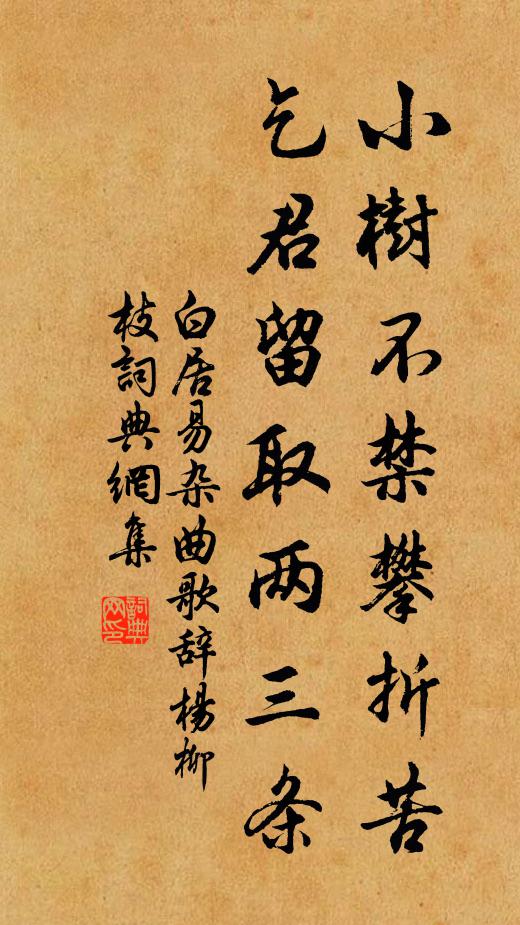 小樹不禁攀折苦
乞君留取两三条
白居易杂曲歌辞楊柳
枝詞典網集
詞典
网印